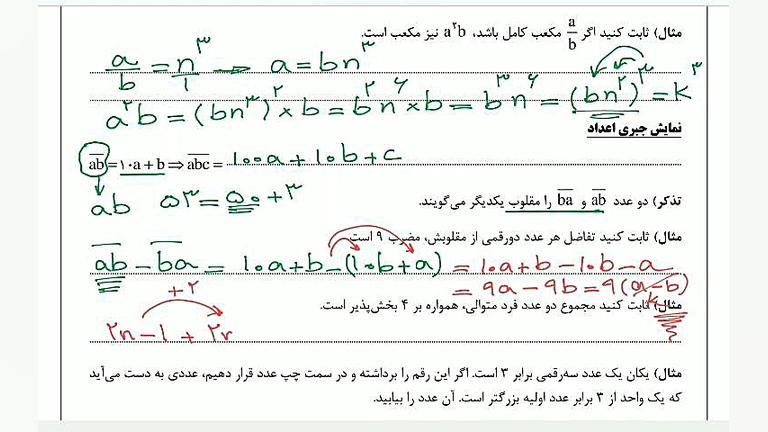 مثال) ثابت کنید اگر a/b مکعب کامل باشد، a²b نیز مکعب است.
a/b = n^۳/۱ → a = bn^۳
a^۲b = (bn^۳)^۲ × b = b^۲n^۶ × b = b^۳n^۶ = (bn^۲)^۳ = k^۳
نمایش جبری اعداد
ab = ۱۰a + b ⇒ abc = ۱۰۰a + ۱۰b + c
تذکر) دو عدد ab و ba را مقلوب یکدیگر می‌گویند.
ab ۵۳ = ۵۰ + ۳
مثال) ثابت کنید تفاضل هر عدد دورقمی از مقلوبش، مضرب ۹ است.
ab − ba = ۱۰a + b − (۱۰b + a) = ۱۰a + b − ۱۰b − a
= ۹a − ۹b = ۹(a − b)
k
مثال) ثابت کنید مجموع دو عدد فرد متوالی، همواره بر ۴ بخش‌پذیر است.
+۲
۲n − ۱ + ۲n
مثال) یکان یک عدد سه‌رقمی برابر ۳ است. اگر این رقم را برداشته و در سمت چپ عدد قرار دهیم، عددی به دست می‌آید
که یک واحد از ۳ برابر عدد اولیه بزرگتر است. آن عدد را بیابید.